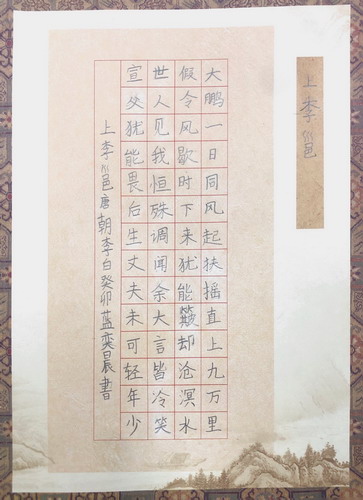 上李邕
大鹏一日同风起扶摇直上九万里
假令风歇时下来犹能簸却沧溟水
世人见我恒殊调闻余大言皆冷笑
宣父犹能畏后生丈夫未可轻年少
上李邕唐朝李白癸卯蓝奕晨書